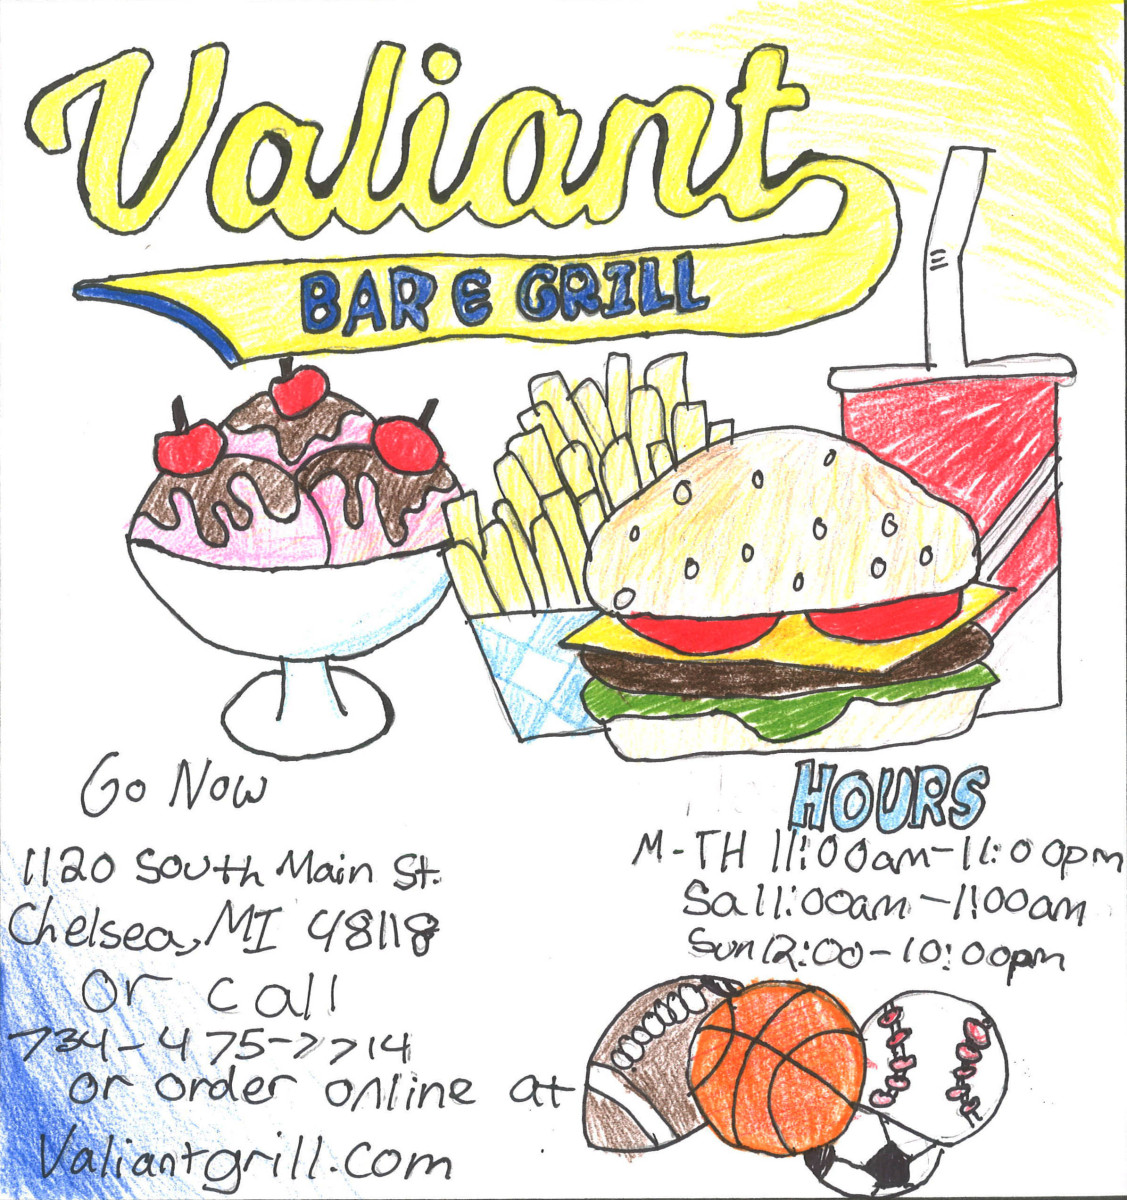 Valiant
BAR & GRILL
Go Now
1120 South Main St.
Chelsea, MI 48118
or call
734-475-7714
or order online at
Valiantgrill.com
HOURS
M-TH 11:00am-11:00pm
Sa 11:00am-1:00am
Sun 12:00-10:00pm